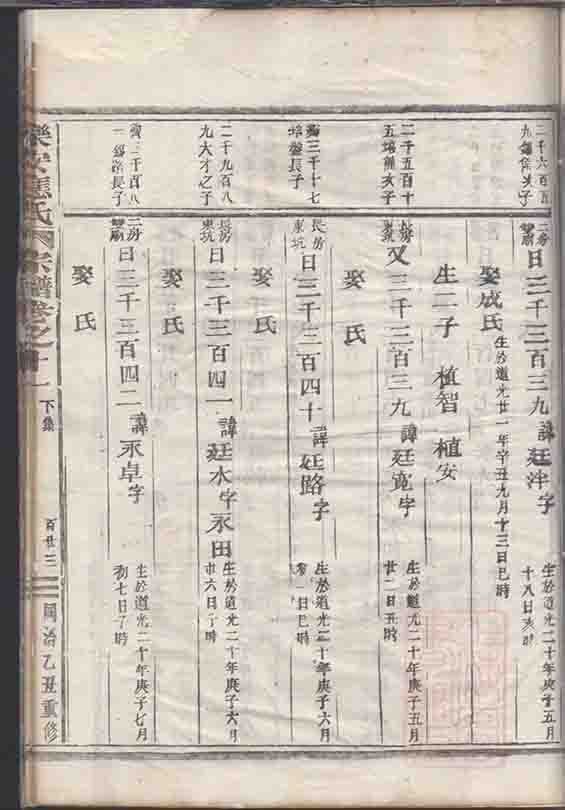 二千六百五
九
子
二房
曰三千三百三九諱廷泮字
生於道光二十年庚子五月
十八日亥時
娶成氏
生於道光廿一年辛丑九月十三日巳時
生二子 植智 植安
二千五百十
五
次子
長房
又三千三百三九諱廷寬字
生於道光二十年庚子五月
廿二日丑時
娶 氏
三千十七
長子
長房
東坑
曰三千三百四十諱廷路字
生於道光二十年庚子六月
初一日巳時
娶 氏
二千九百八
九大才之子
長房
東坑
曰三千三百四一諱廷水字永田
生於道光二十年庚子六月
六日子時
娶 氏
二千百八
一
長子
二房
曰三千三百四二諱永卓字
生於道光二十年庚子七月
初七日子時
娶 氏
應氏宗譜卷之十一
下集
百廿三
同治乙丑重修